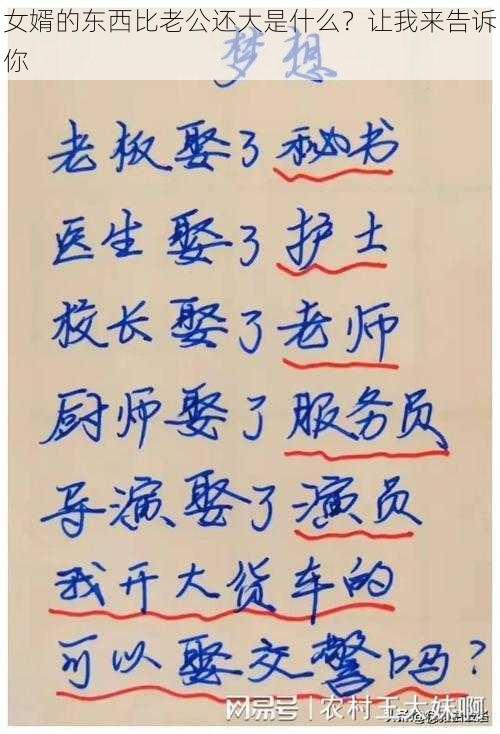 女婿的东西比老公还大是什么？让我来告诉
你
梦想
老板娶了秘书
医生娶了护士
校长娶了老师
厨师娶了服务员
导演娶了演员
我开大货车的
可以娶交警吗？
网易号 | 农村王大妹啊